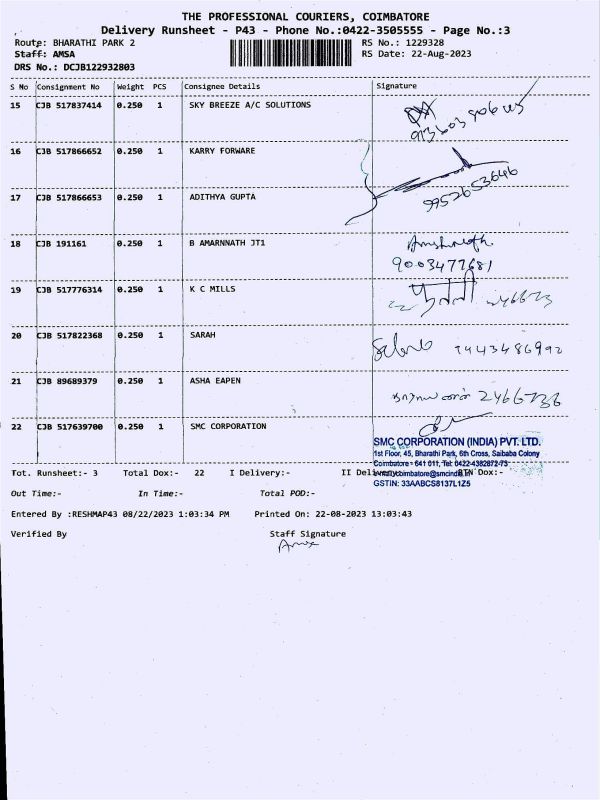 THE PROFESSIONAL COURIERS, COIMBATORE
Delivery Runsheet - P43 - Phone No.:0422-3505555 - Page No.:3
Route: BHARATHI PARK 2 RS No.: 1229328
Staff: AMSA RS Date: 22-Aug-2023
DRS No.: DCJB122932803
S No Consignment No Weight PCS Consignee Details Signature
15 CJB 517837414 0.250 1 SKY BREEZE A/C SOLUTIONS
16 CJB 517866652 0.250 1 KARRY FORWARE
17 CJB 517866653 0.250 1 ADITHYA GUPTA 9952653646
18 CJB 191161 0.250 1 B AMARNNATH JT1
9003477681
19 CJB 517776314 0.250 1 K C MILLS
20 CJB 517822368 0.250 1 SARAH 9443486992
21 CJB 89689379 0.250 1 ASHA EAPEN
22 CJB 517639700 0.250 1 SMC CORPORATION
SMC CORPORATION (INDIA) PVT. LTD.
1st Floor, 45, Bharathi Park, 6th Cross, Saibaba Colony
Coimbatore - 641 011, Tel: 0422-4382872-73
Tot. Runsheet:- 3 Total Dox:- 22 I Delivery:- II Dox:-
GSTIN: 33AABCS8137L1Z5
Out Time:- In Time:- Total POD:-
Entered By :RESHMAP43 08/22/2023 1:03:34 PM Printed On: 22-08-2023 13:03:43
Verified By Staff Signature